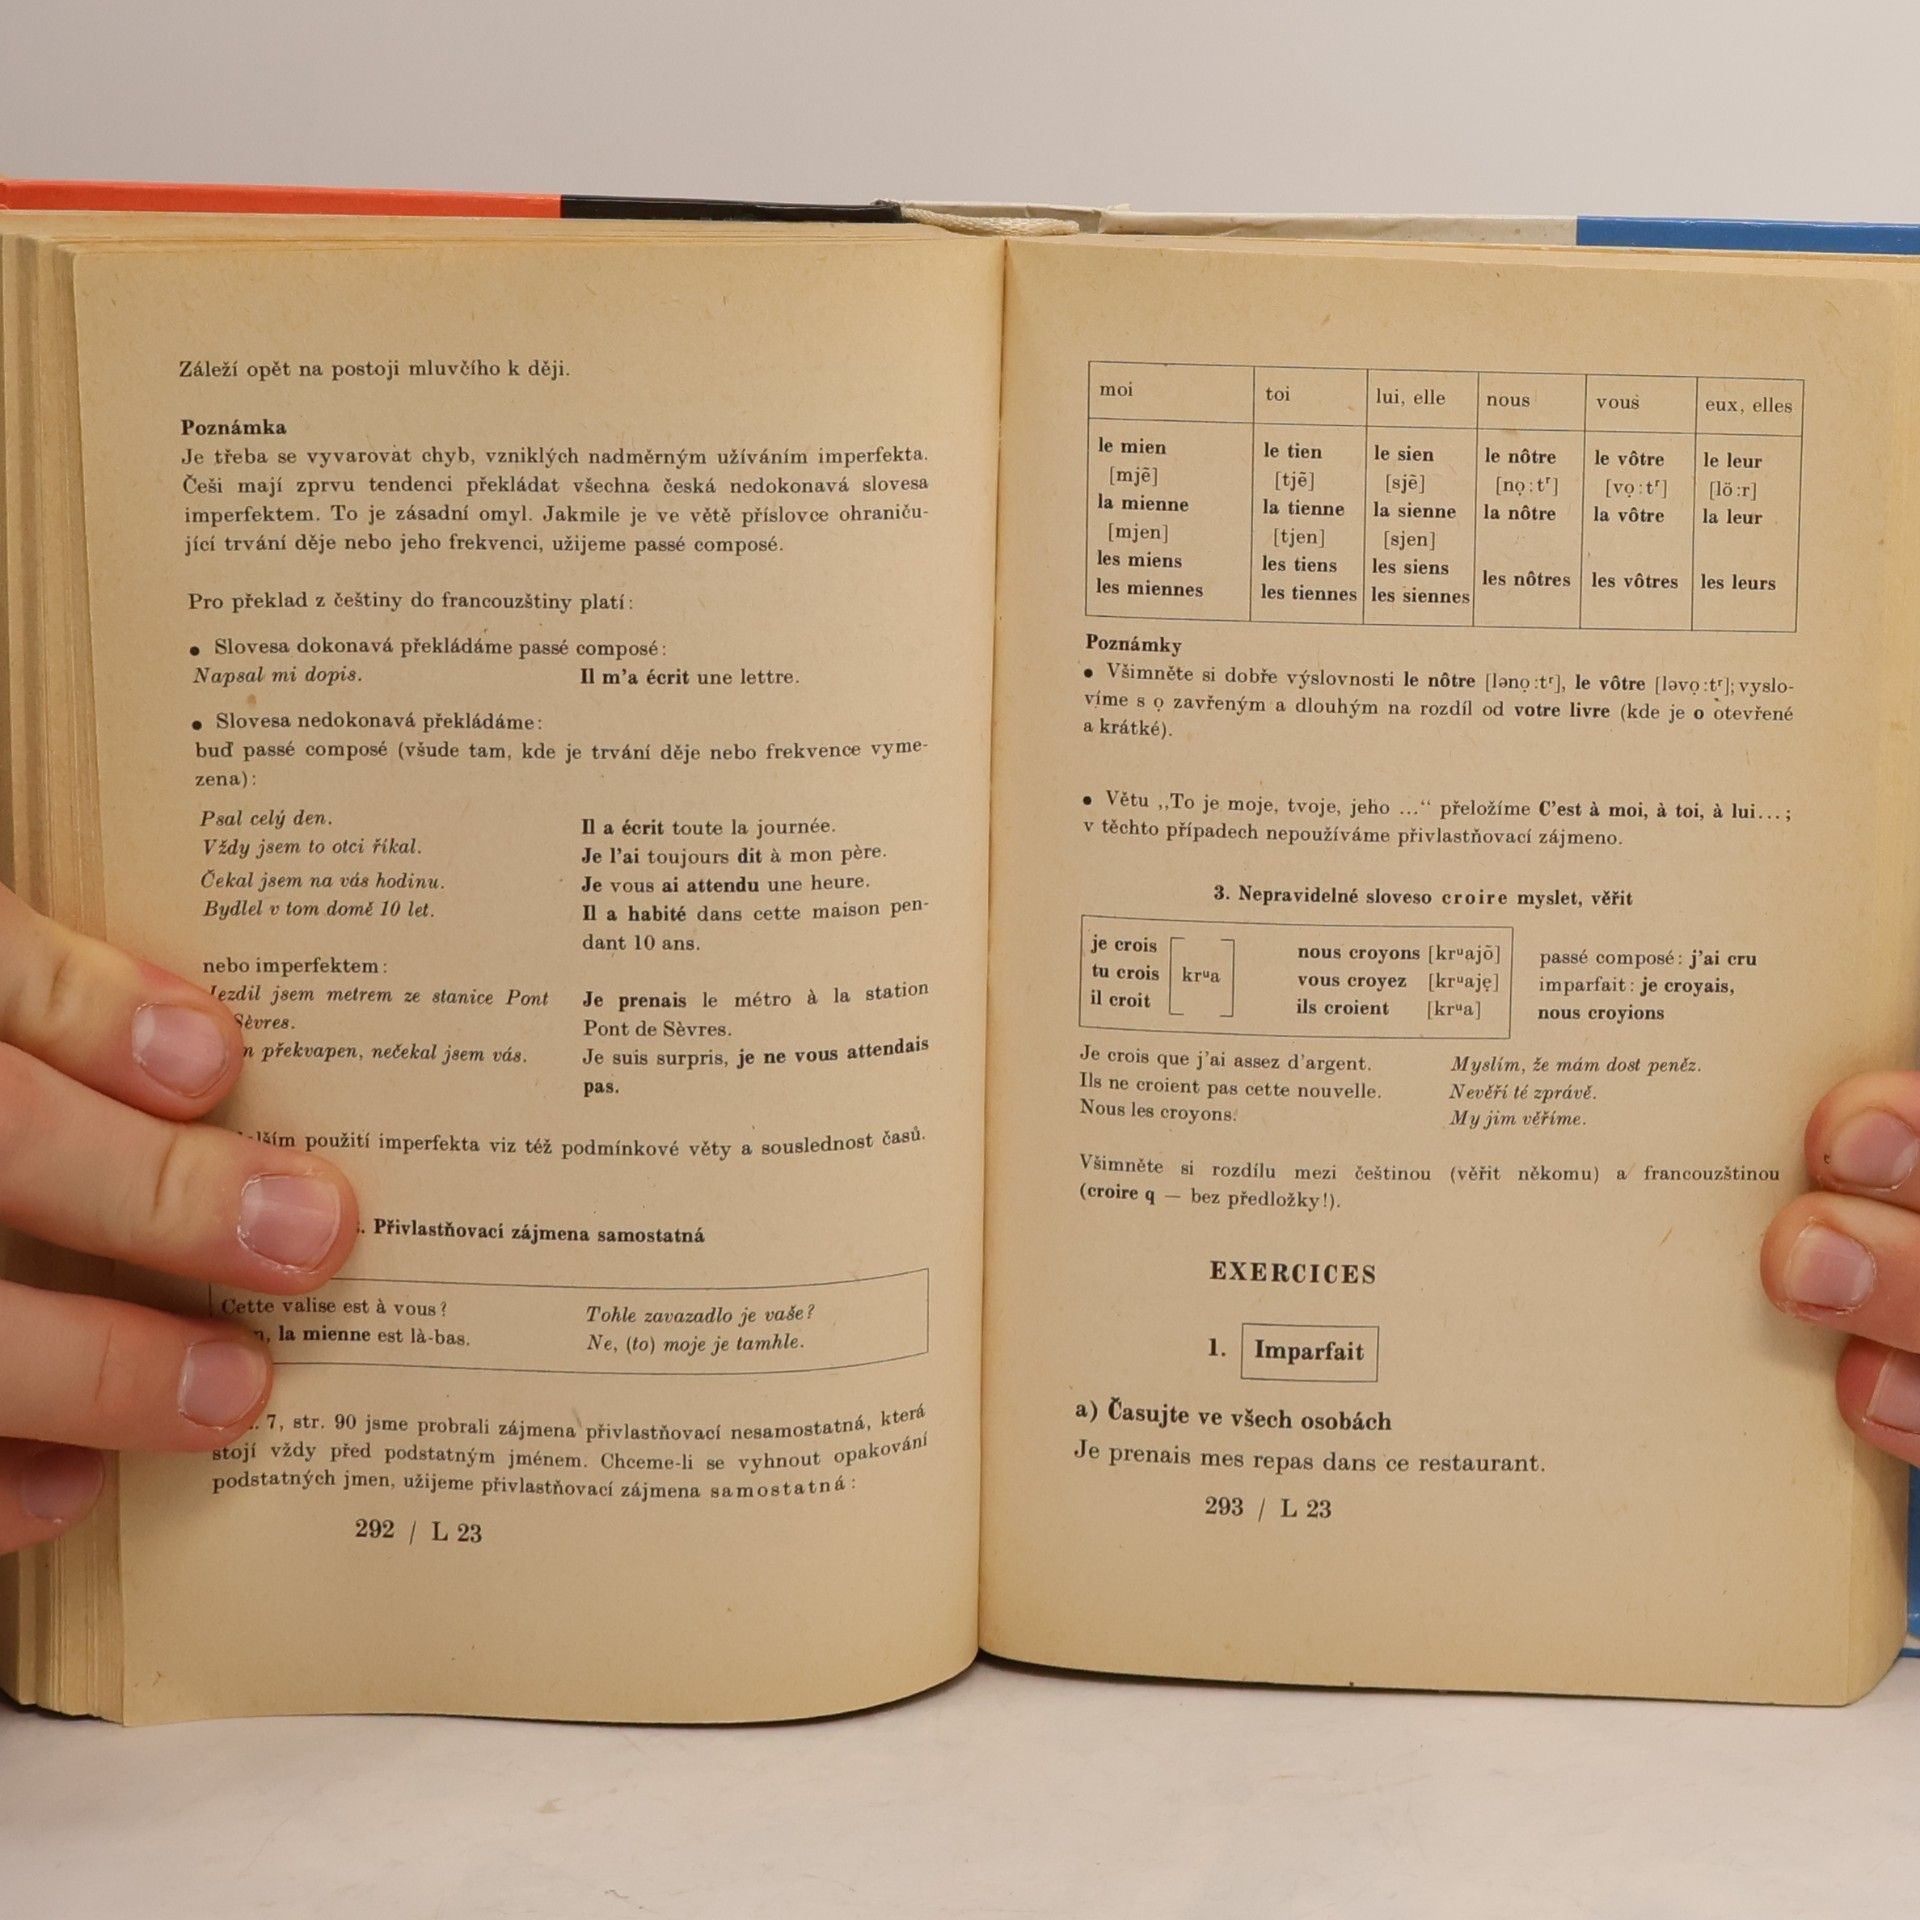 Záleží opět na postoji mluvčího k ději.
Poznámka
Je třeba se vyvarovat chyb, vzniklých nadměrným užíváním imperfekta.
Češi mají zprvu tendenci překládat všechna česká nedokonavá slovesa
imperfektem. To je zásadní omyl. Jakmile je ve větě příslovce ohraniču-
jící trvání děje nebo jeho frekvenci, užijeme passé composé.
Pro překlad z češtiny do francouzštiny platí:
• Slovesa dokonavá překládáme passé composé:
Napsal mi dopis. Il m'a écrit une lettre.
• Slovesa nedokonavá překládáme:
buď passé composé (všude tam, kde je trvání děje nebo frekvence vyme-
zena):
Psal celý den. Il a écrit toute la journée.
Vždy jsem to otci říkal. Je l'ai toujours dit à mon père.
Čekal jsem na vás hodinu. Je vous ai attendu une heure.
Bydlel v tom domě 10 let. Il a habité dans cette maison pen-
dant 10 ans.
nebo imperfektem:
Jezdil jsem metrem ze stanice Pont Je prenais le métro à la station
Sèvres. Pont de Sèvres.
překvapen, nečekal jsem vás. Je suis surpris, je ne vous attendais
pas.
použití imperfekta viz též podmínkové věty a souslednost časů.
Přivlastňovací zájmena samostatná
Cette valise est à vous? Tohle zavazadlo je vaše?
la mienne est là-bas. Ne, (to) moje je tamhle.
7, str. 90 jsme probrali zájmena přivlastňovací nesamostatná, která
stojí vždy před podstatným jménem. Chceme-li se vyhnout opakování
podstatných jmen, užijeme přivlastňovací zájmena samostatná:
292 / L 23
moi toi lui, elle nous vous eux, elles
le mien le tien le sien le nôtre le vôtre le leur
[mjẽ] [tjẽ] [sjẽ] [nọ:tʳ] [vọ:tʳ] [lö:r]
la mienne la tienne la sienne la nôtre la vôtre la leur
[mjen] [tjen] [sjen]
les miens les tiens les siens les nôtres les vôtres les leurs
les miennes les tiennes les siennes
Poznámky
• Všimněte si dobře výslovnosti le nôtre [lənọ:tʳ], le vôtre [ləvọ:tʳ]; vyslo-
víme s ọ zavřeným a dlouhým na rozdíl od votre livre (kde je o otevřené
a krátké).
• Větu ,,To je moje, tvoje, jeho ...“ přeložíme C'est à moi, à toi, à lui...;
v těchto případech nepoužíváme přivlastňovací zájmeno.
3. Nepravidelné sloveso croire myslet, věřit
je crois nous croyons [krᵘajõ] passé composé: j'ai cru
tu crois krᵘa vous croyez [krᵘajẹ] imparfait: je croyais,
il croit ils croient [krᵘa] nous croyions
Je crois que j'ai assez d'argent. Myslím, že mám dost peněz.
Ils ne croient pas cette nouvelle. Nevěří té zprávě.
Nous les croyons. My jim věříme.
Všimněte si rozdílu mezi češtinou (věřit někomu) a francouzštinou
(croire q — bez předložky!).
EXERCICES
1. Imparfait
a) Časujte ve všech osobách
Je prenais mes repas dans ce restaurant.
293 / L 23